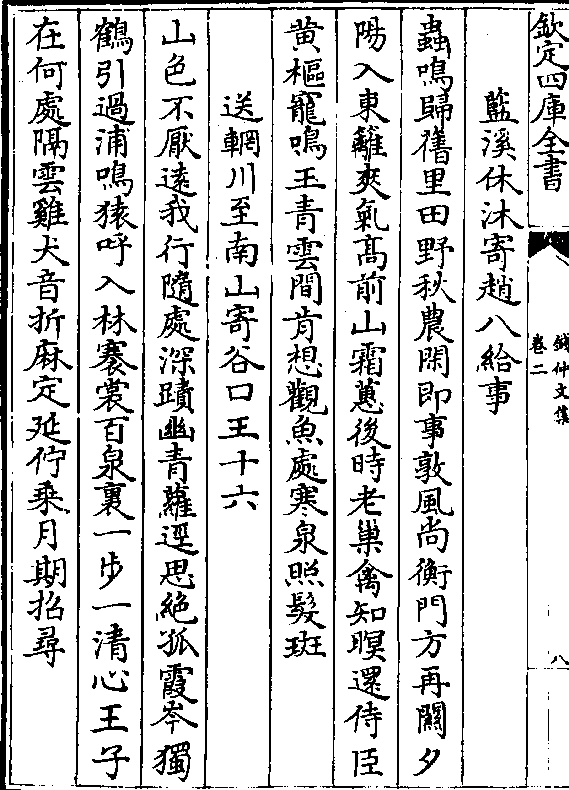 欽定四庫全書
錢仲文集
卷二
八
藍溪休沐寄趙八給事
蟲鳴歸舊里田野秋農閑即事敦風尚衡門方再闗夕
陽入東籬爽氣髙前山霜蕙後時老巢禽知暝還侍臣
黄樞寵鳴玉青雲間肯想觀魚處寒泉照髮斑
送輞川至南山寄谷口王十六
山色不厭遠我行隨處深蹟幽青蘿逕思絶孤霞岑獨
鶴引過浦鳴猿呼入林褰裳百泉裏一步一清心王子
在何處隔雲雞犬音折麻定延佇乗月期招尋